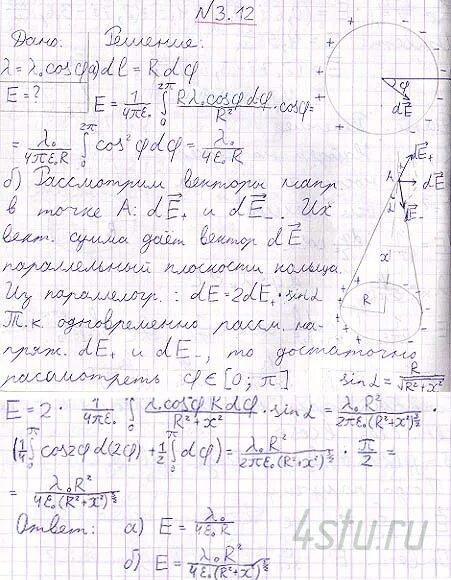 N 3.12
Дано: Решение:
λ = λ₀cosφ а) dl = R dφ
E = ?
E = 1/(4πε₀) ∫₀^{2π} Rλ₀cosφ dφ/R² · cosφ =
= λ₀/(4πε₀R) ∫₀^{2π} cos²φ dφ = λ₀/(4ε₀R)
б) Рассмотрим векторы напр
в точке A: dE⃗₊ и dE⃗₋. Их
вект. сумма даёт вектор dE⃗
параллельный плоскости кольца.
Из параллелогр.: dE = 2dE₊·sinα
Т.к. одновременно рассм. на-
пряж. dE₊ и dE₋, то достаточно
рассмотреть φ∈[0; π] sinα = R/√(R²+x²)
E = 2 · 1/(4πε₀) ∫₀^{π} λ₀cos²φ R dφ/(R²+x²) · sinα = λ₀R²/(2πε₀(R²+x²)^{3/2}) ·
· (1/4 ∫₀^{π} cos2φ d(2φ) + 1/2 ∫₀^{π} dφ) = λ₀R²/(2πε₀(R²+x²)^{3/2}) · π/2 =
= λ₀R²/(4ε₀(R²+x²)^{3/2})
Ответ: а) E = λ₀/(4ε₀R)
б) E = λ₀R²/(4ε₀(R²+x²)^{3/2})
φ
dE⃗
E⃗₊
A
dE⃗
E⃗₋
α
x
R
4stu.ru